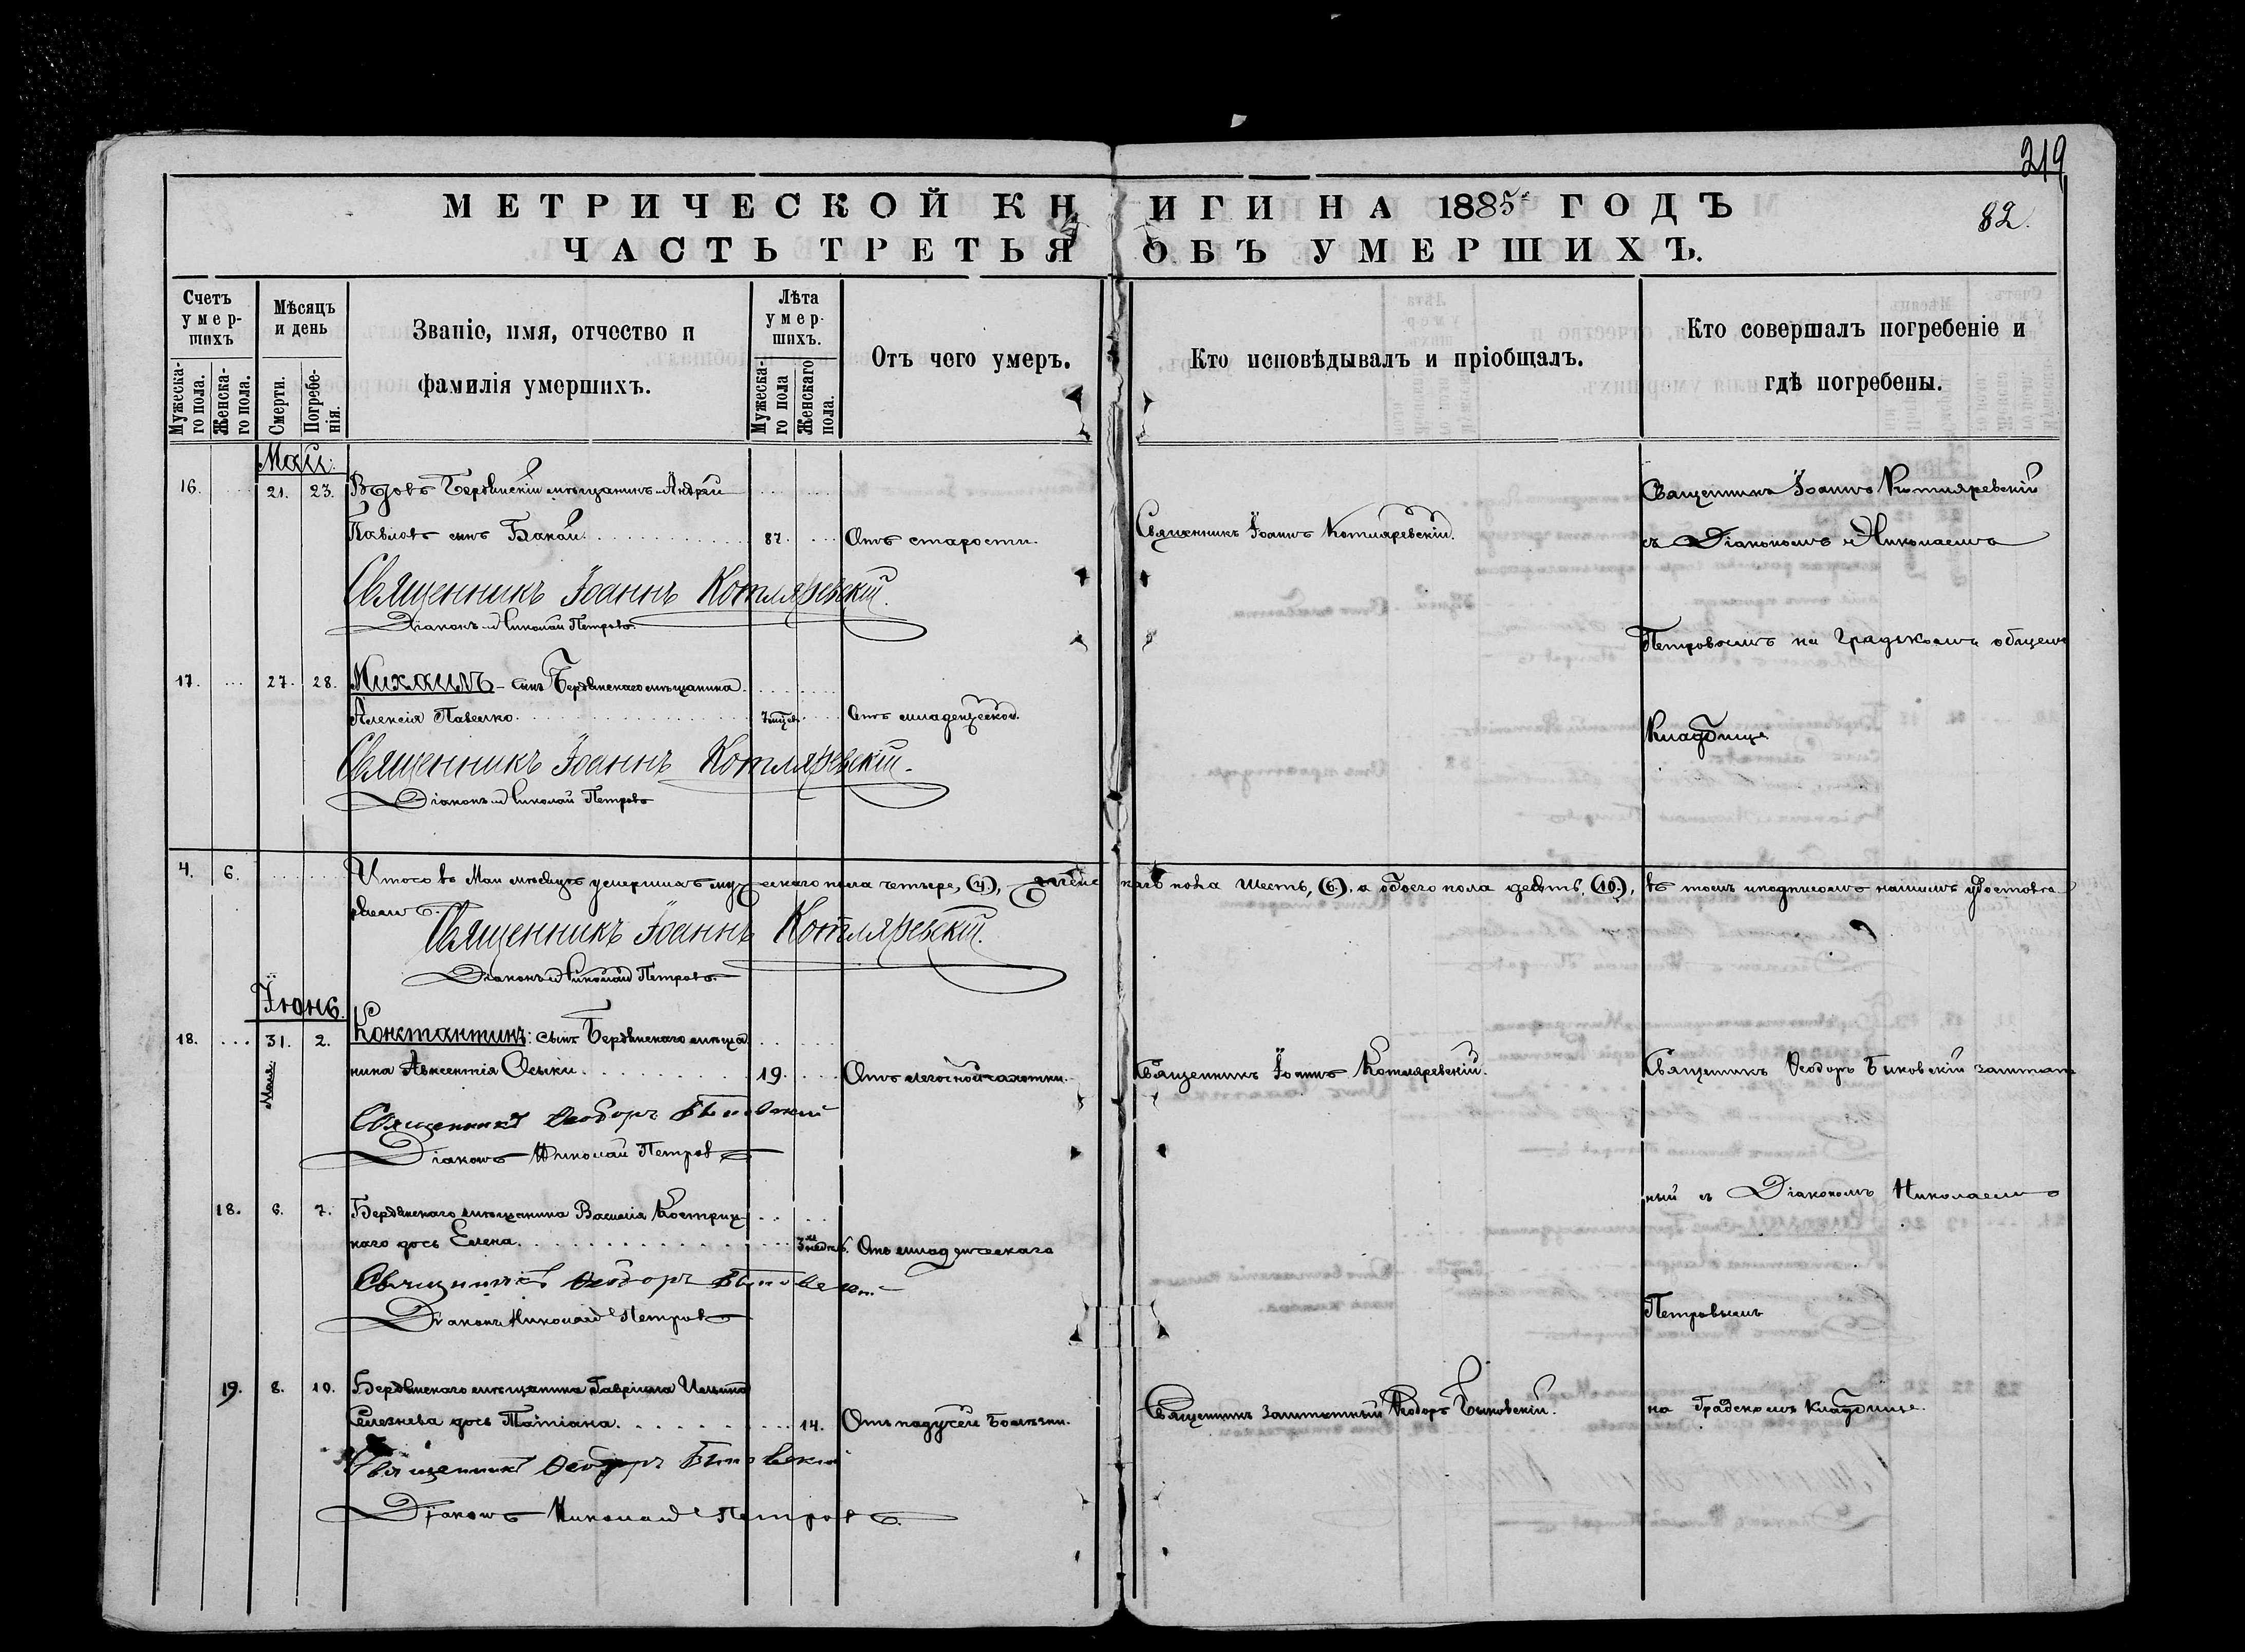 219
МЕТРИЧЕСКОЙ КНИГИ НА 1885 ГОДЪ
82.
ЧАСТЬ ТРЕТЬЯ ОБЪ УМЕРШИХЪ.
Счетъ умер-шихъ
Мѣсяцъ и день
Званіе, имя, отчество и фамилія умершихъ.
Лѣта умер-шихъ.
Отъ чего умеръ.
Кто исповѣдывалъ и пріобщалъ.
Кто совершалъ погребеніе и гдѣ погребены.
Мужеска-го пола.
Женска-го пола.
Смерти.
Погребе-нія.
Мужеска-го пола
Женскаго пола.
Май.
16. 21. 23. Вдовъ Бердянскій мѣщанинъ Андрей
Павловъ сынъ Бакай. 87. Отъ старости.
Священникъ Іоаннъ Котляревскій.
Священникъ Іоаннъ Котляревскій
съ Діакономъ Николаемъ
Петровымъ на Градскомъ общемъ
Кладбищѣ
Священникъ Іоаннъ Котляревскій.
Діаконъ Николай Петровъ
17. 27. 28. Михаилъ - сынъ Бердянскаго мѣщанина
Алексія Павелко. Отъ младенческой.
Священникъ Іоаннъ Котляревскій.
Діаконъ Николай Петровъ
4. 6. Итого въ Маи мѣсяцѣ умершихъ мужескаго пола четыре, (4), женскаго пола шесть, (6), а обоего пола десять, (10), въ томъ и подписомъ нашимъ удостовѣ-
ряемъ.
Священникъ Іоаннъ Котляревскій.
Діаконъ Николай Петровъ.
Іюнь.
18. 31. 2. Константинъ: сынъ Бердянскаго мѣща
Мая
нина Авксентія 19. Отъ легочной чахотки.
Священникъ Іоаннъ Котляревскій.
Священникъ Ѳеодоръ Быковскій заштат
ный съ Діакономъ Николаемъ
Петровымъ
на Градскомъ кладбищѣ.
Священникъ Ѳеодоръ Быковскій
Діаконъ Николай Петровъ
18. 6. 7. Бердянскаго мѣщанина Василія Костриц
каго дочь Елена. Отъ младенческаго
Священникъ Ѳеодоръ Быковскій
Діаконъ Николай Петровъ
19. 8. 10. Бердянскаго мѣщанина Гавріила Ильина
Селезнева дочь Татіана. 14. Отъ падучей болѣзни.
Священникъ заштатный Ѳеодоръ Быковскій.
Священникъ Ѳеодоръ Быковскій
Діаконъ Николай Петровъ.